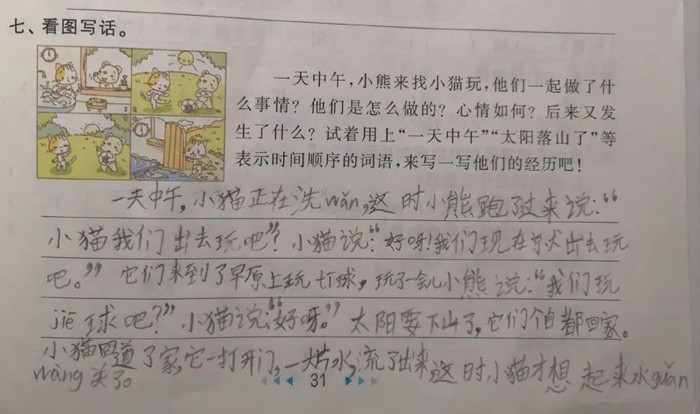 七、看图写话。
一天中午,小熊来找小猫玩,他们一起做了什
么事情?他们是怎么做的?心情如何?后来又发
生了什么?试着用上“一天中午”“太阳落山了”等
表示时间顺序的词语,来写一写他们的经历吧!
一天中午,小猫正在洗wǎn,这时小熊跑了过来说:“
小猫我们出去玩吧”?小猫说:“好呀!我们现在就出去玩
吧。”它们来到了早原上玩打球,玩了一会儿小熊说:“我们玩
jiē球吧?”小猫说:“好呀。”太阳要下山了,它们个自都回家。
小猫回道了家,它一打开门,一大片水,流了出来这时,小猫才想起来水guǎn
wàng关了。
31